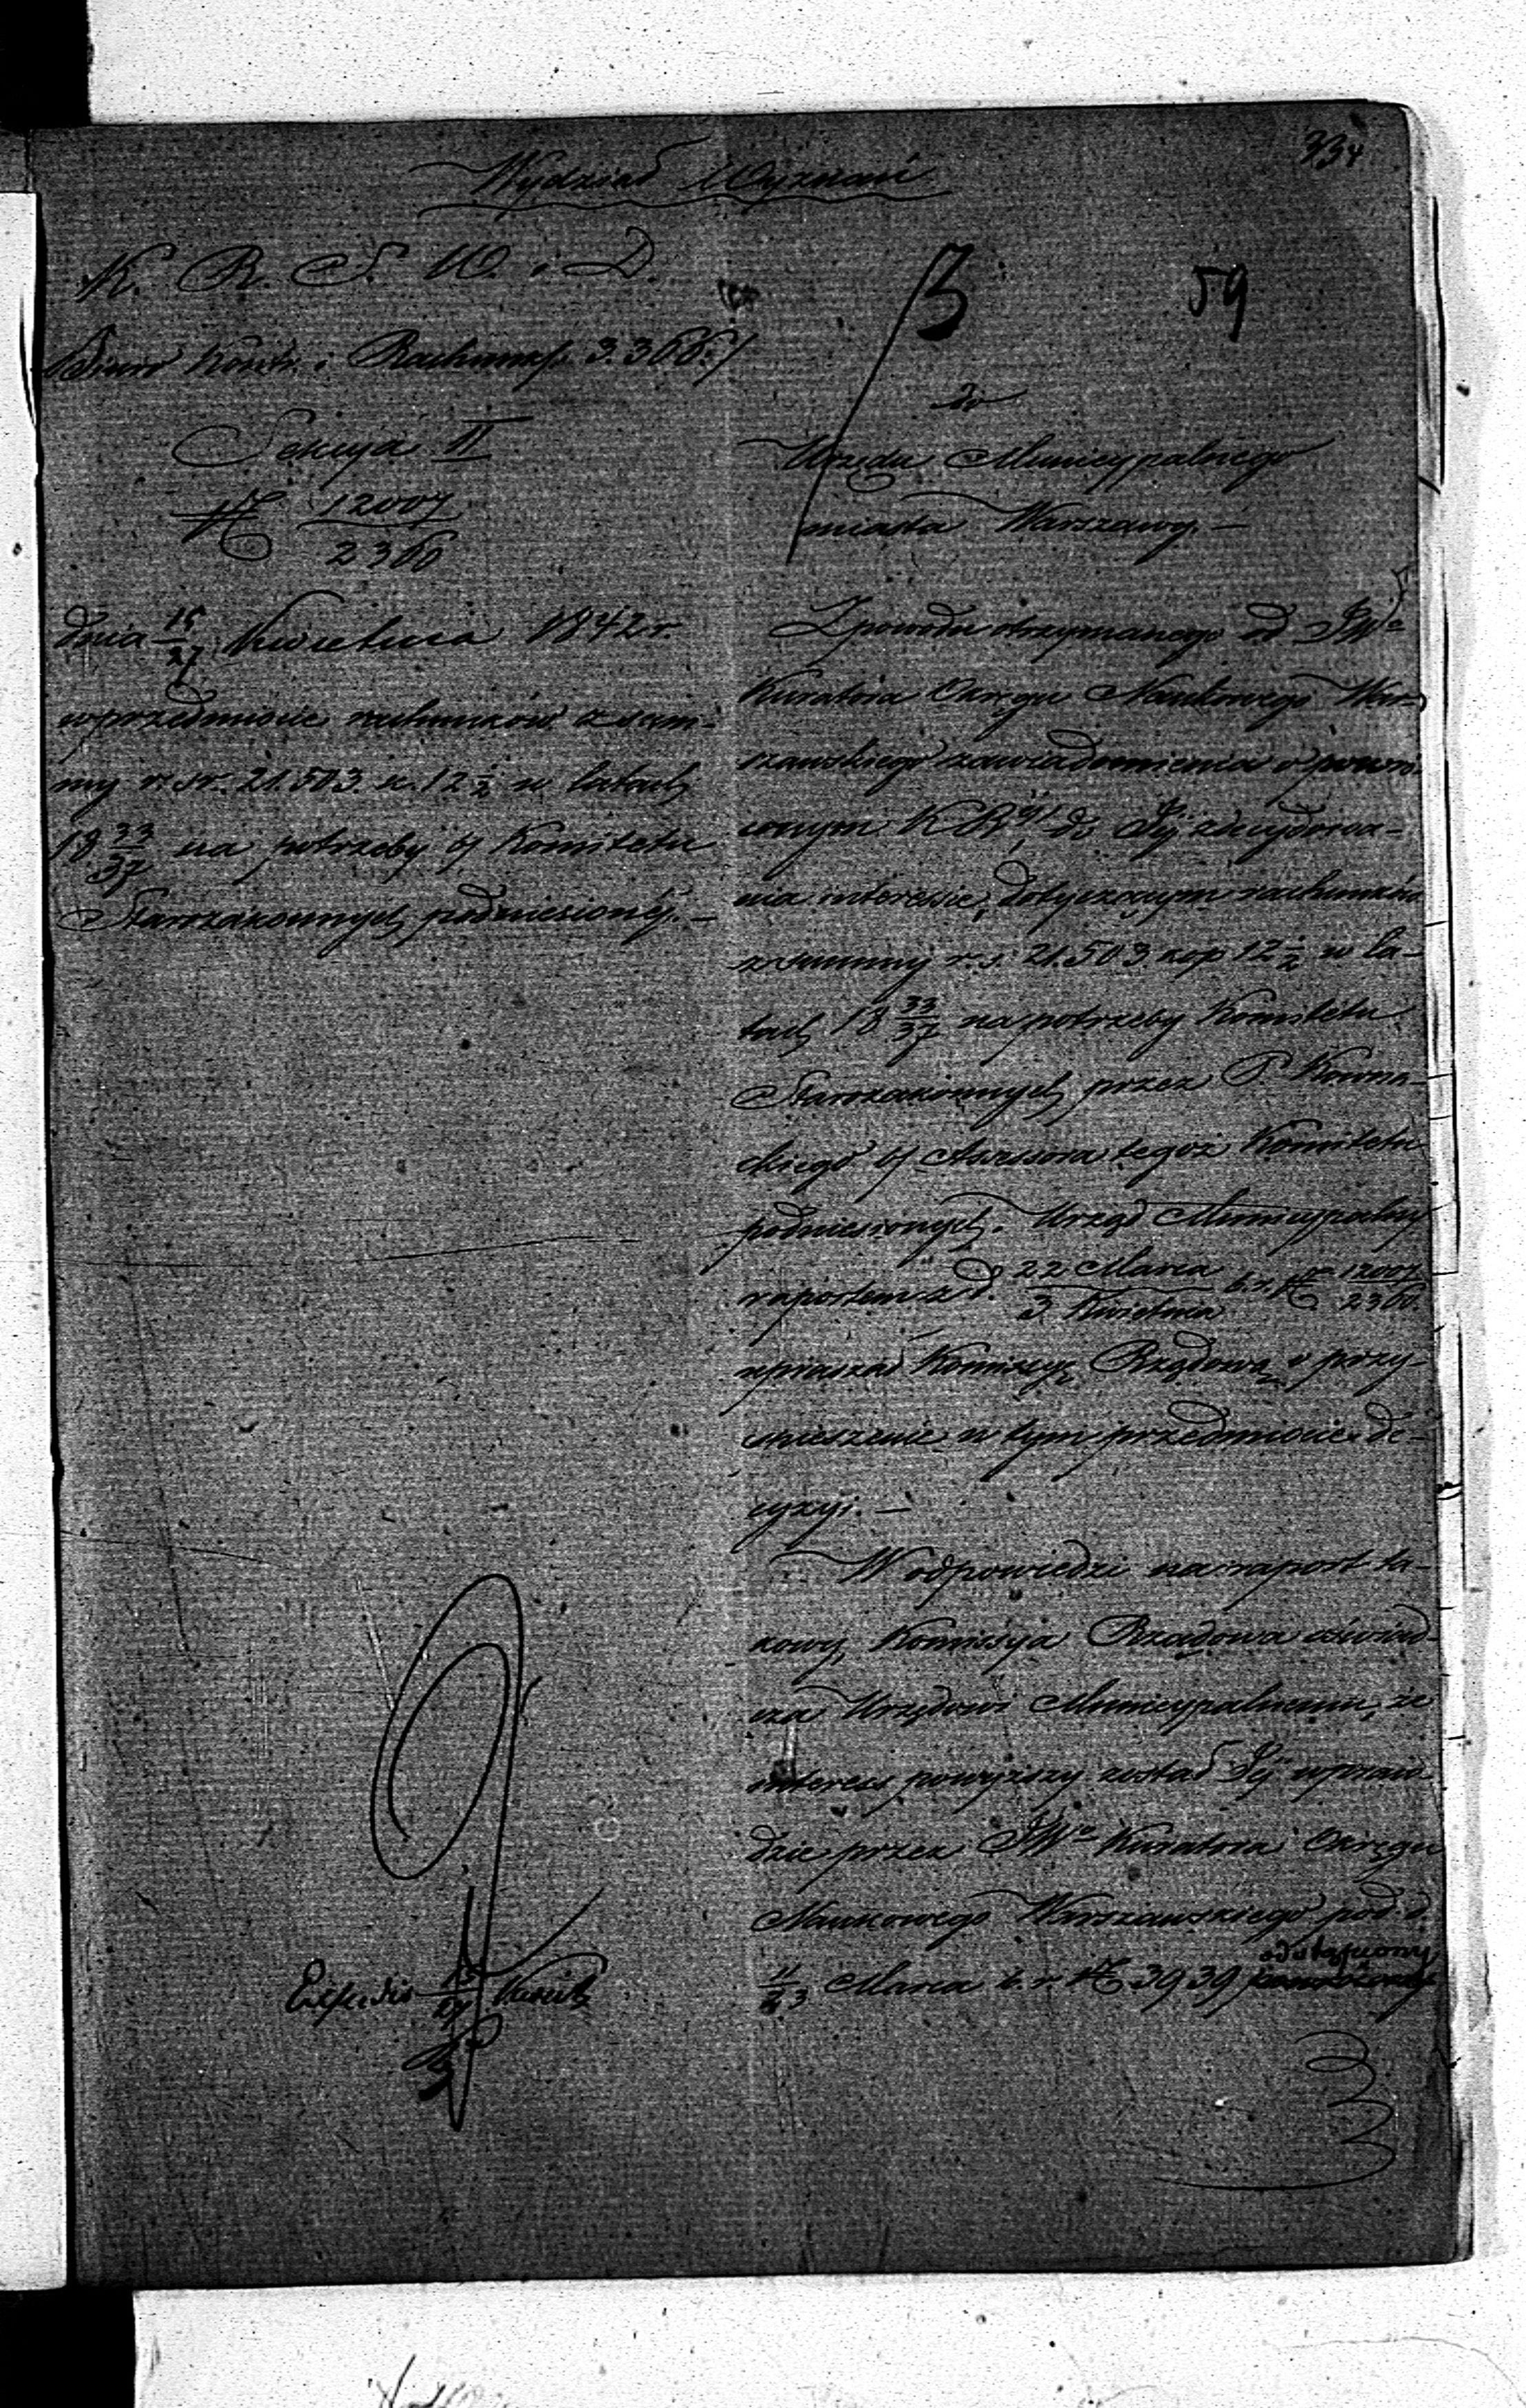 334
Wydział Wyznań
K. R. S. W. i D.
59
Biuro Kontr. i Rachunk.
Sekcya II
№ 12007/2360
dnia 15/27 Kwietnia 1842 r.
w przedmiocie rachunków z sum-
my r. sr. 21.503. k. 12 1/2 w latach
18 33/37 na potrzeby b. Komitetu
Starozakonnych podniesionéj. —
Exped. 15/27 Kwiet.
do
Urzędu Municypalnego
miasta Warszawy. —
Z powodu otrzymanego od JWo
Kuratora Okręgu Naukowego War-
szawskiego zawiadomienia o powro-
conym KRyi do Jéj zdecydowa-
nia interessie, dotyczącym rachunków
z summy r. s. 21.503 kop 12 1/2 w la-
tach 18 33/37 na potrzeby Komitetu
Starozakonnych przez P.
b. Assessora tegoż Komitetu
podniesionych. Urząd Municypalny
raportem z d. 22 Marca/3 Kwietnia b. r. № 12007/2360.
upraszał Komissyę Rządową o przy-
spieszenie w tym przedmiocie de-
cyzyi. —
W odpowiedzi na raport ta-
kowy, Komissya Rządowa oświad-
cza Urzędowi Municypalnemu, że
interess powyższy został Jéj wpraw-
dzie przez JWo Kuratora Okręgu
Naukowego Warszawskiego pod d.
odstąpiony
11/23 Marca b. r. № 3939